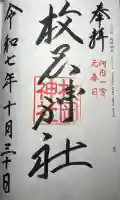 奉拝
河内一宮
元春日
枚岡神社
令和七年十月三十日